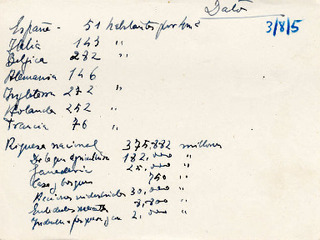 Datos
3/8/5
España - 51 habitantes por km²
Italia 143 "
Belgica 282 "
Alemania 146
Inglaterra 272 "
Holanda 252 "
Francia 76 "
Riqueza nacional 375.882 millones
agricultura 182.000 "
Ganaderia 25.000 "
Caza y bosques 750 "
industriales 30.000 "
8.800 "
2.000 "